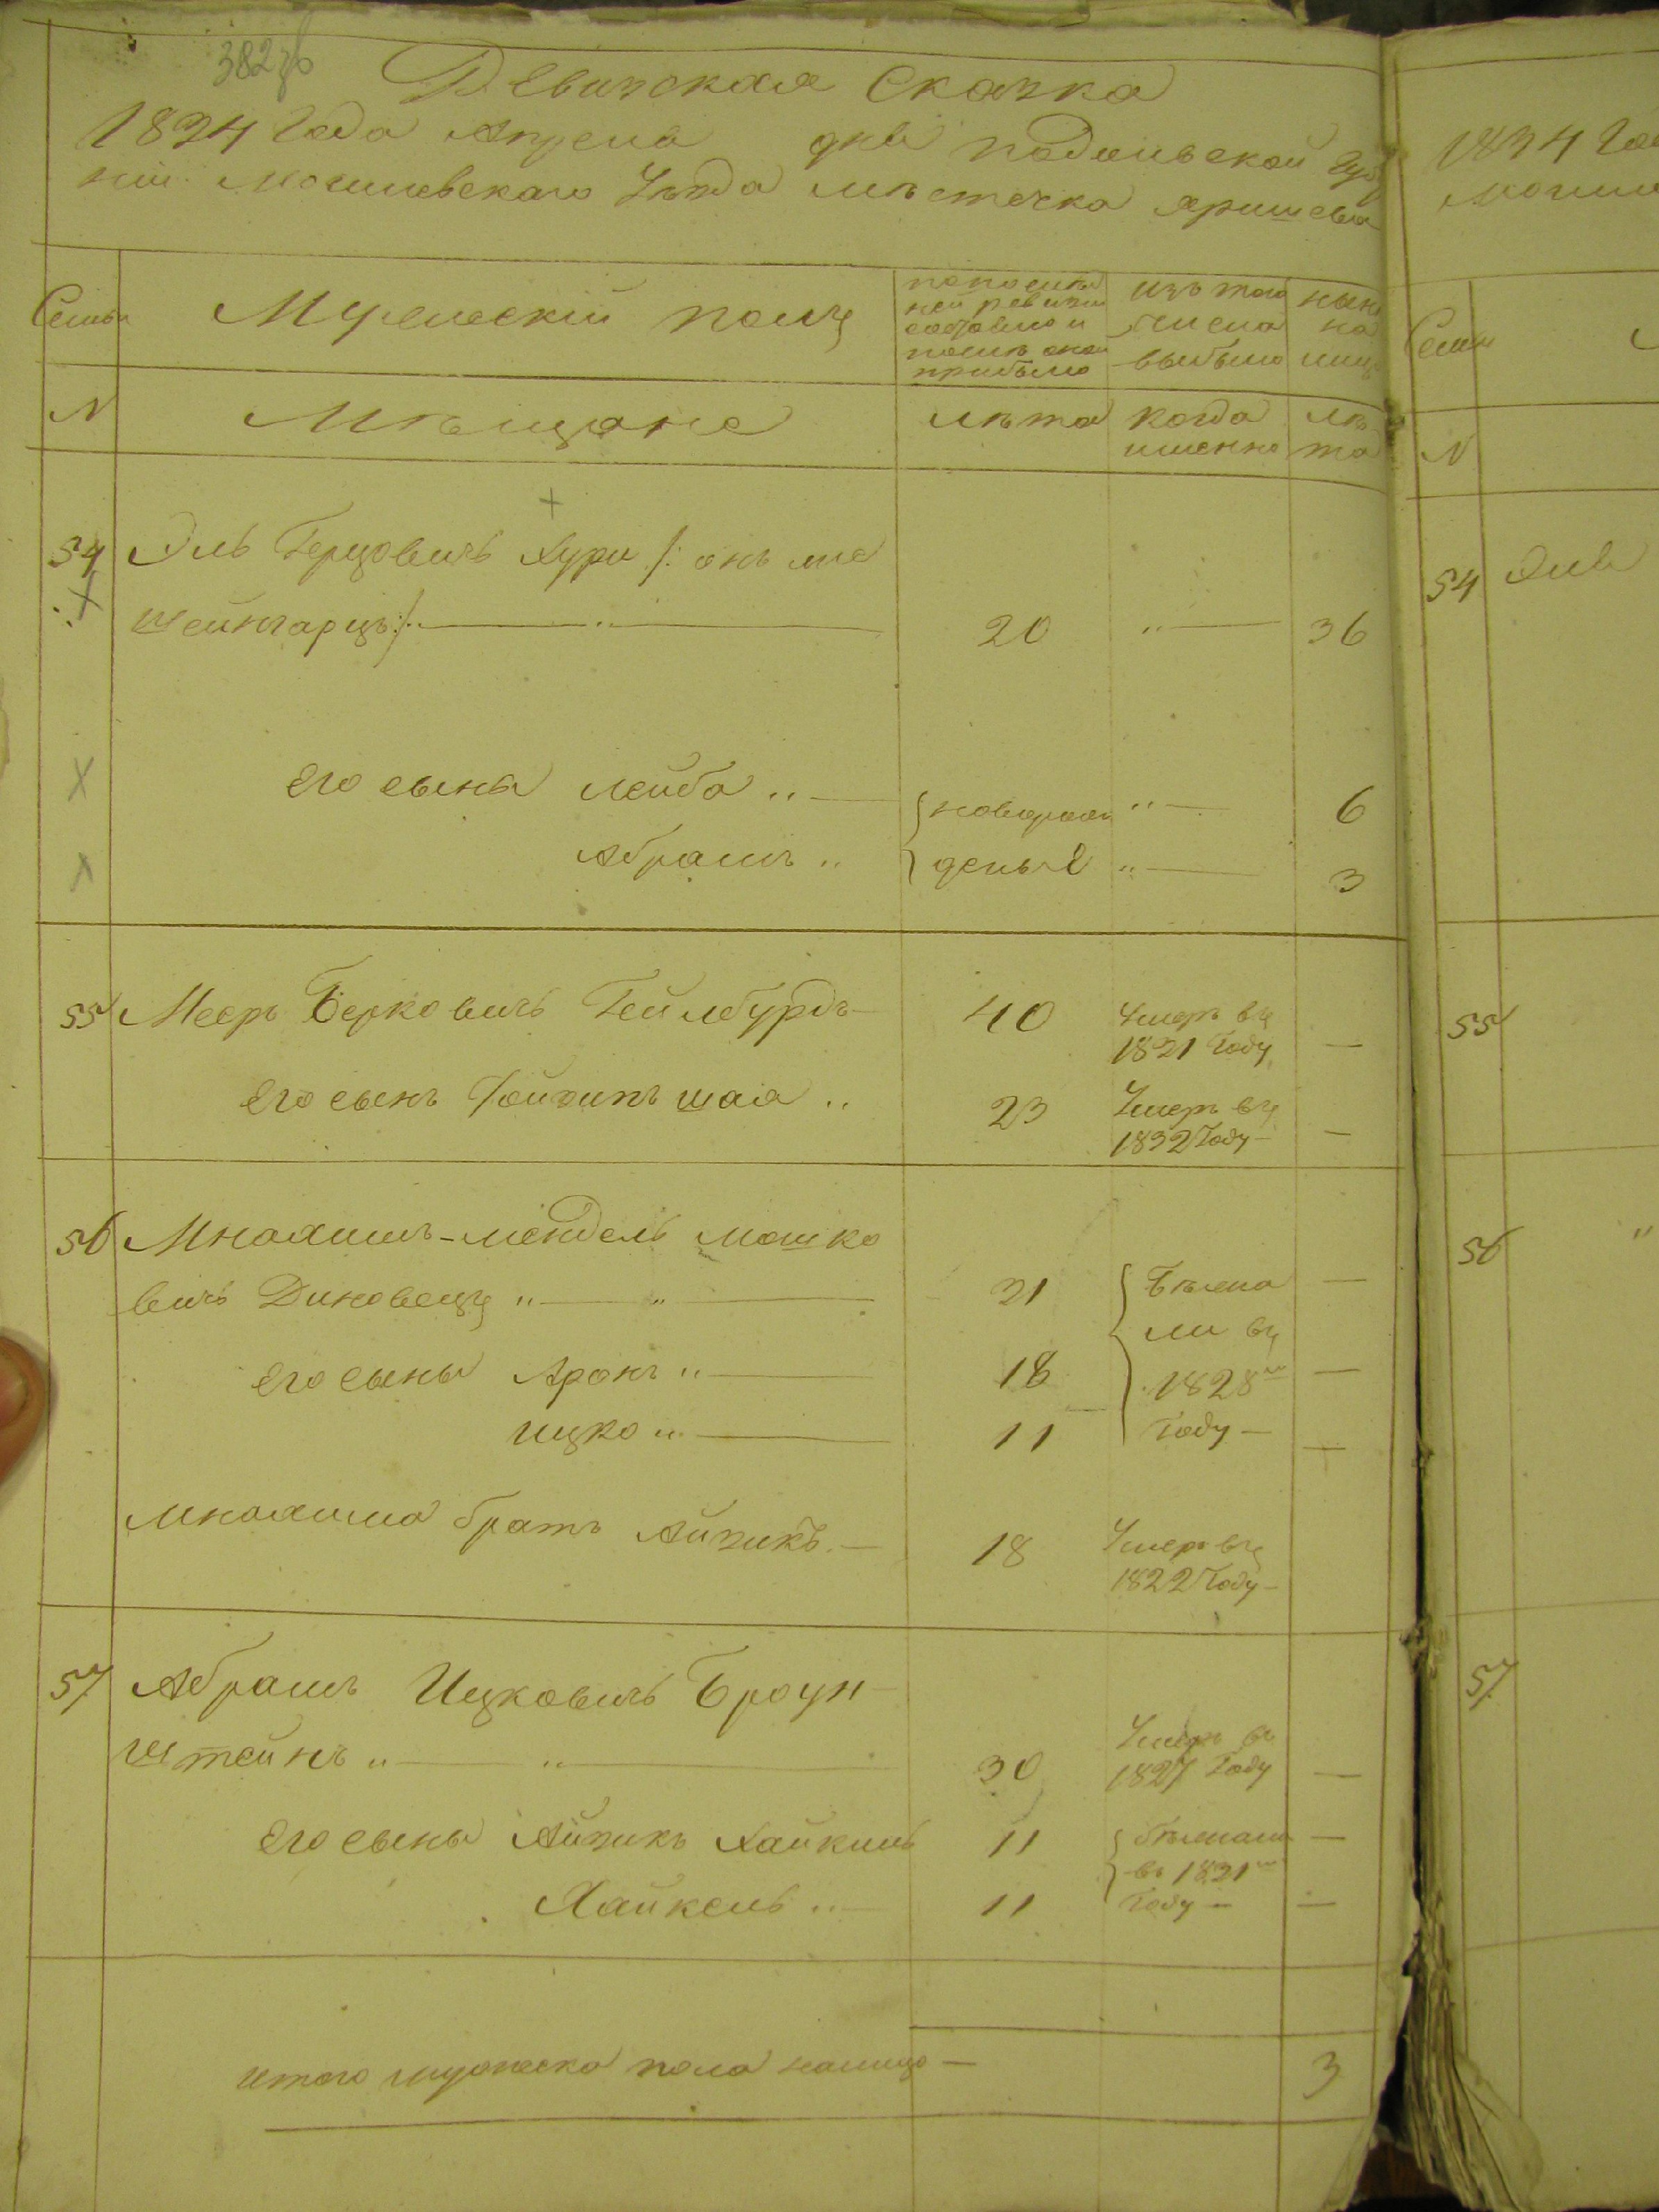 382 об
Ревизская Сказка
1834 года Апреля дня Подольской Губ
ніи Могилевскаго Уѣзда мѣстечка Яришева
Семьи
Мужескій полъ
по послѣд
ней ревизіи
состояло и
послѣ оной
прибыло
изъ того
числа
выбыло
нынѣ
на
лицо
N
Мѣщане
лѣта
когда
именно
лѣ
та
54 Эль Герцовичъ Хури /: онъ же
Шейнгарцъ :/ 20 36
Его сына Лейба новорож 6
Абрамъ деные 3
55 Мееръ Берковичъ Геилбурдъ 40 Умеръ въ
1821 году
Его сынъ Шая 23 Умеръ въ
1832 году
56 Мнахимъ-Мендель Мошко
вичъ Диновецъ 21 Бѣжа
ли въ
Его сыны Аронъ 18 1828мъ
Ицко 11 году
Мнахима братъ Айзикъ 18 Умеръ въ
1822 году
57 Абрамъ Ицковичъ Броун
штейнъ 30 Умеръ въ
1827 году
Его сыны Айзикъ Хаикель 11 бѣжали
въ 1831мъ
Хаикель 11 году
Итого мужеска пола налицо 3
1834 Го
Могил
Семьи
N
54 Эль
55
56
57